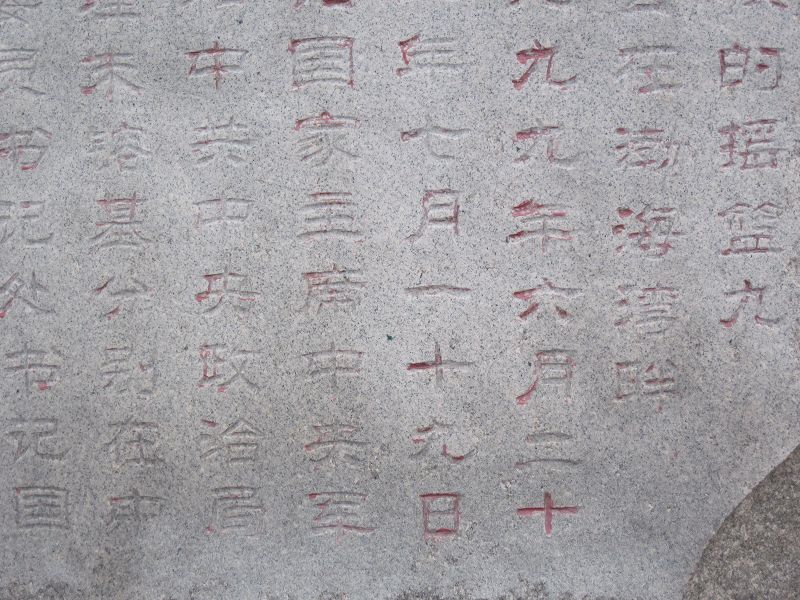 的摇篮九
在渤海湾畔
九九年六月二十
年七月一十九日
国家主席中央军
中共中央政治局
朱镕基分别在中
员书记处书记国